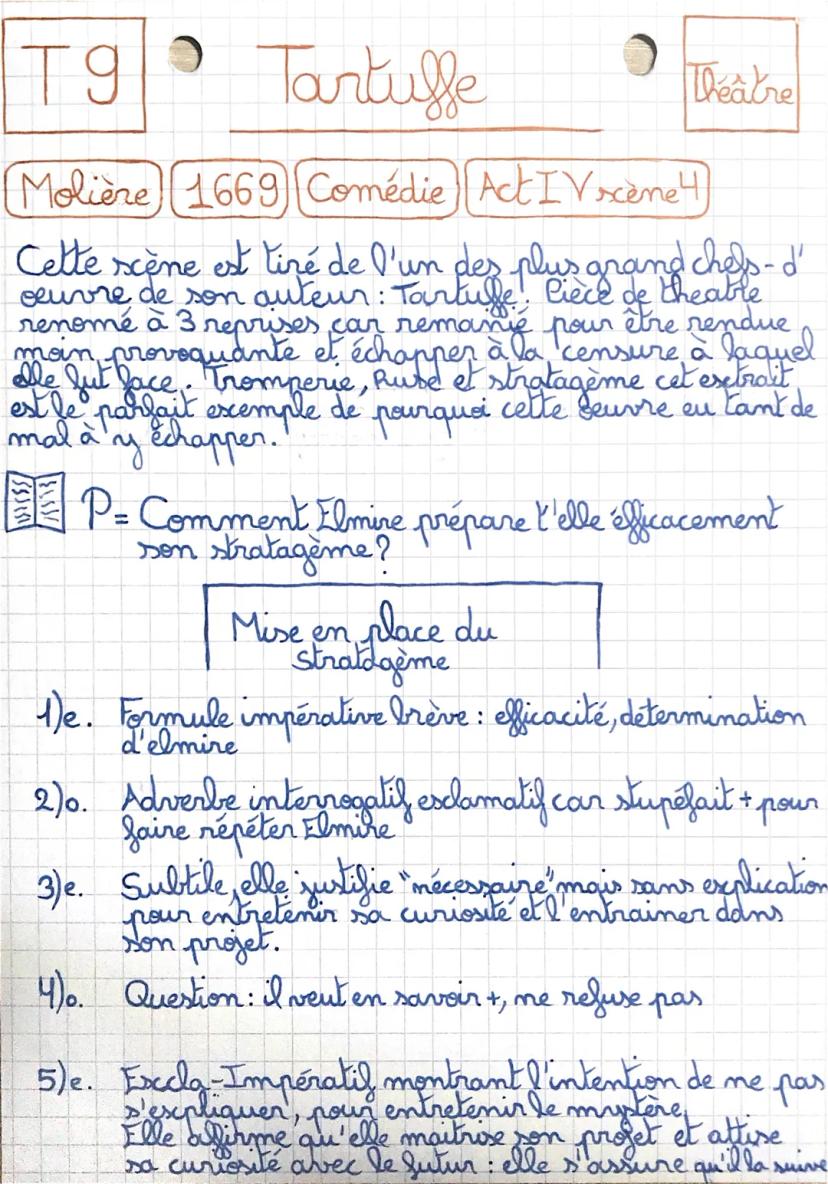 T9
Tartuffe
Théâtre
Molière 1669 Comédie Act IV scène 4
Cette scène est tiré de l'un des plus grand chefs-d'
oeuvre de son auteur : Tartuffe. Pièce de theatre
renomé à 3 reprises car remanié pour être rendue
moin provoquante et échapper à la censure à laquel
elle fut face. Tromperie, Ruse et stratagème cet extrait
est le parfait exemple de pourquoi cette oeuvre eu tant de
mal à y échapper.
P= Comment Elmire prépare t'elle éfficacement
son stratagème?
Mise en place du
stratagème
1)e. Formule impérative brève : efficacité, détermination
d'elmire
2)o. Adverbe interrogatif esclamatif car stupéfait + pour
faire répéter Elmire
3)e. Subtile, elle justifie "nécessaire" mais sans explication
pour entretenir sa curiosité et l'entrainer dans
son projet.
4)o. Question : il veut en savoir +, ne refuse pas
5)e. Exccla-Impératif montrant l'intention de ne pas
s'expliquer, pour entretenir le mystère,
Elle affirme qu'elle maitrise son projet et attise
sa curiosité avec le futur : elle s'assure qu'il la suive